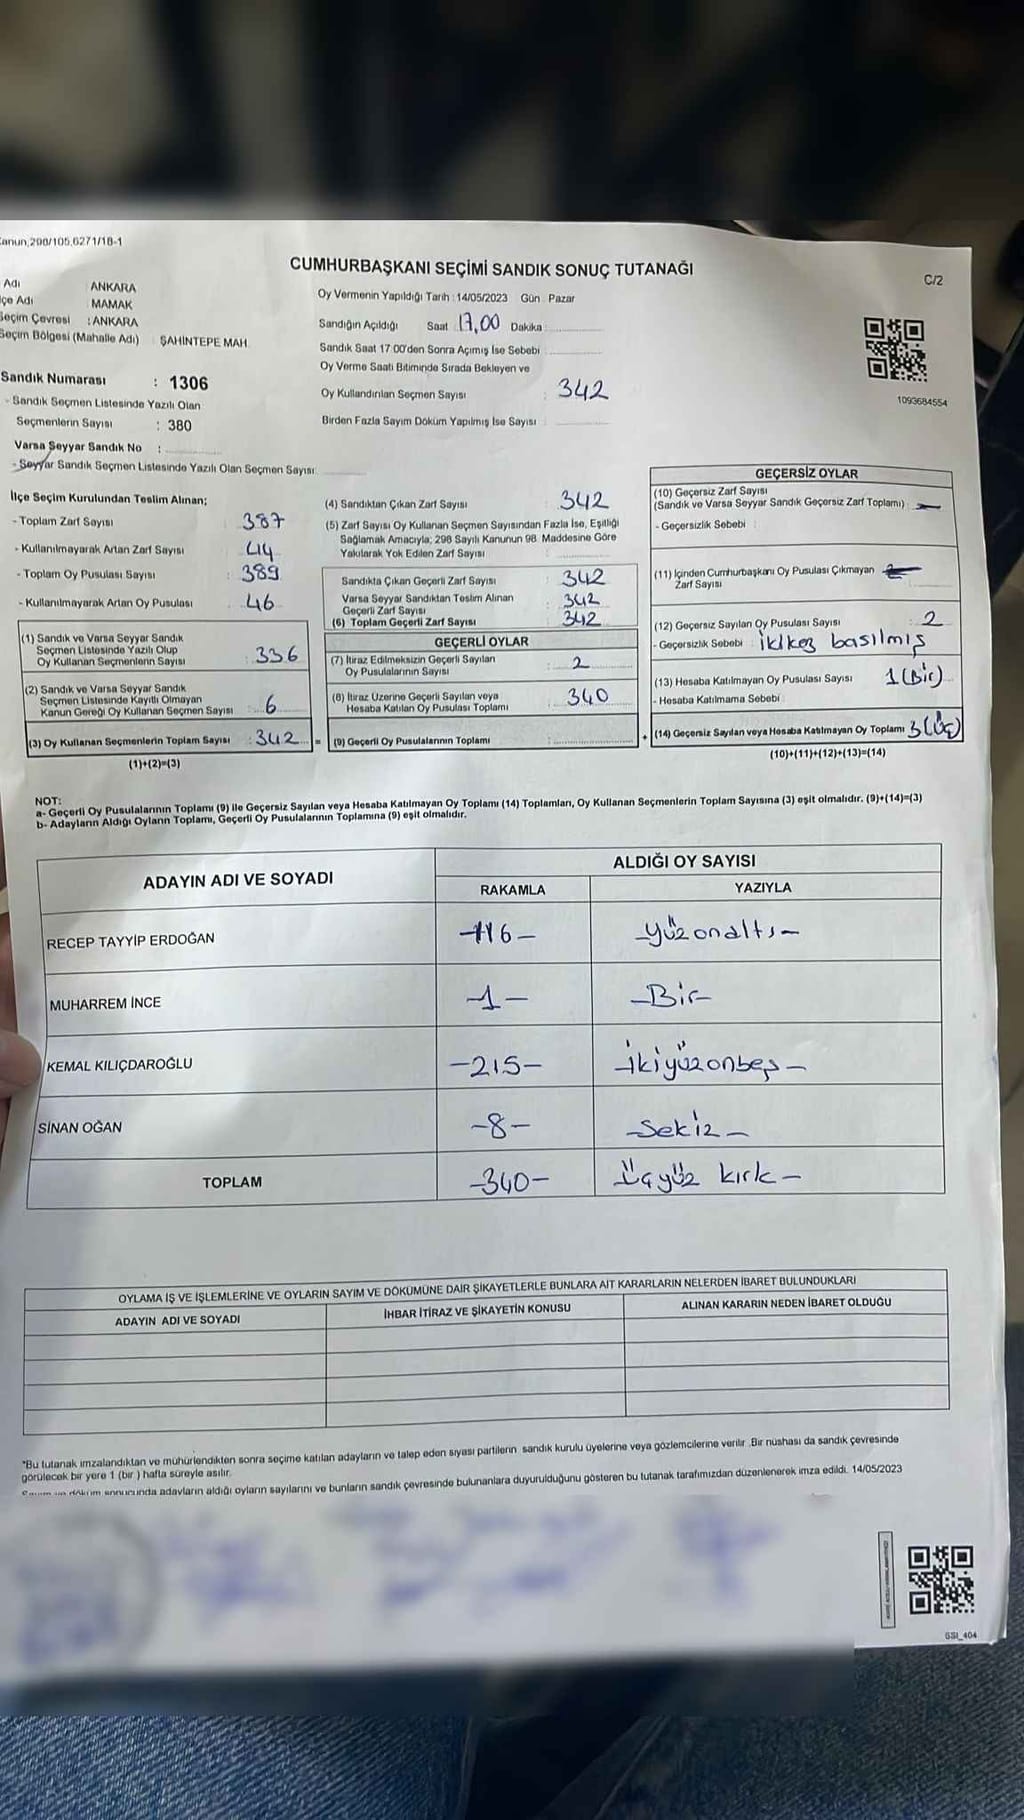 Kanun,298/105,6271/18-1
CUMHURBAŞKANI SEÇİMİ SANDIK SONUÇ TUTANAĞI
C/2
Adı ANKARA
lçe Adı MAMAK
Seçim Çevresi : ANKARA
Seçim Bölgesi (Mahalle Adı) ŞAHİNTEPE MAH.
Oy Vermenin Yapıldığı Tarih : 14/05/2023 Gün : Pazar
Sandığın Açıldığı Saat 17,00 Dakika :
Sandık Saat 17:00'den Sonra Açımış İse Sebebi :
Oy Verme Saati Bitiminde Sırada Bekleyen ve
Oy Kullandırılan Seçmen Sayısı : 342
Birden Fazla Sayım Döküm Yapılmış İse Sayısı :
1093684554
Sandık Numarası : 1306
- Sandık Seçmen Listesinde Yazılı Olan
Seçmenlerin Sayısı : 380
Varsa Seyyar Sandık No :
- Seyyar Sandık Seçmen Listesinde Yazılı Olan Seçmen Sayısı:
İlçe Seçim Kurulundan Teslim Alınan;
- Toplam Zarf Sayısı : 387
- Kullanılmayarak Artan Zarf Sayısı : 44
- Toplam Oy Pusulası Sayısı : 389
- Kullanılmayarak Artan Oy Pusulası : 46
(1) Sandık ve Varsa Seyyar Sandık
Seçmen Listesinde Yazılı Olup
Oy Kullanan Seçmenlerin Sayısı : 336
(2) Sandık ve Varsa Seyyar Sandık
Seçmen Listesinde Kayıtlı Olmayan
Kanun Gereği Oy Kullanan Seçmen Sayısı : 6
(3) Oy Kullanan Seçmenlerin Toplam Sayısı : 342 =
(1)+(2)=(3)
(4) Sandıktan Çıkan Zarf Sayısı : 342
(5) Zarf Sayısı Oy Kullanan Seçmen Sayısından Fazla İse, Eşitliği
Sağlamak Amacıyla; 298 Sayılı Kanunun 98. Maddesine Göre
Yakılarak Yok Edilen Zarf Sayısı :
Sandıkta Çıkan Geçerli Zarf Sayısı : 342
Varsa Seyyar Sandıktan Teslim Alınan
Geçerli Zarf Sayısı : 342
(6) Toplam Geçerli Zarf Sayısı : 342
GEÇERLİ OYLAR
(7) İtiraz Edilmeksizin Geçerli Sayılan
Oy Pusulalarının Sayısı : 2
(8) İtiraz Üzerine Geçerli Sayılan veya
Hesaba Katılan Oy Pusulası Toplamı : 340
(9) Geçerli Oy Pusulalarının Toplamı : +
GEÇERSİZ OYLAR
(10) Geçersiz Zarf Sayısı
(Sandık ve Varsa Seyyar Sandık Geçersiz Zarf Toplamı) : —
- Geçersizlik Sebebi :
(11) İçinden Cumhurbaşkanı Oy Pusulası Çıkmayan
Zarf Sayısı
(12) Geçersiz Sayılan Oy Pusulası Sayısı : 2
- Geçersizlik Sebebi : İkikez basılmış
(13) Hesaba Katılmayan Oy Pusulası Sayısı 1 (Bir)
- Hesaba Katılmama Sebebi :
(14) Geçersiz Sayılan veya Hesaba Katılmayan Oy Toplamı 3 (Üç)
(10)+(11)+(12)+(13)=(14)
NOT:
a- Geçerli Oy Pusulalarının Toplamı (9) ile Geçersiz Sayılan veya Hesaba Katılmayan Oy Toplamı (14) Toplamları, Oy Kullanan Seçmenlerin Toplam Sayısına (3) eşit olmalıdır. (9)+(14)=(3)
b- Adayların Aldığı Oyların Toplamı, Geçerli Oy Pusulalarının Toplamına (9) eşit olmalıdır.
ADAYIN ADI VE SOYADI
ALDIĞI OY SAYISI
RAKAMLA YAZIYLA
RECEP TAYYİP ERDOĞAN -116- -yüzonaltı-
MUHARREM İNCE -1- -Bir-
KEMAL KILIÇDAROĞLU -215- -ikiyüzonbeş-
SİNAN OĞAN -8- -Sekiz-
TOPLAM -340- -üçyüz kırk-
OYLAMA İŞ VE İŞLEMLERİNE VE OYLARIN SAYIM VE DÖKÜMÜNE DAİR ŞİKAYETLERLE BUNLARA AİT KARARLARIN NELERDEN İBARET BULUNDUKLARI
ADAYIN ADI VE SOYADI İHBAR İTİRAZ VE ŞİKAYETİN KONUSU ALINAN KARARIN NEDEN İBARET OLDUĞU
*Bu tutanak imzalandıktan ve mühürlendikten sonra seçime katılan adayların ve talep eden siyasi partilerin sandık kurulu üyelerine veya gözlemcilerine verilir. Bir nüshası da sandık çevresinde
görülecek bir yere 1 (bir ) hafta süreyle asılır.
Sayım ve döküm sonucunda adayların aldığı oyların sayılarını ve bunların sandık çevresinde bulunanlara duyurulduğunu gösteren bu tutanak tarafımızdan düzenlenerek imza edildi. 14/05/2023
GSI_404